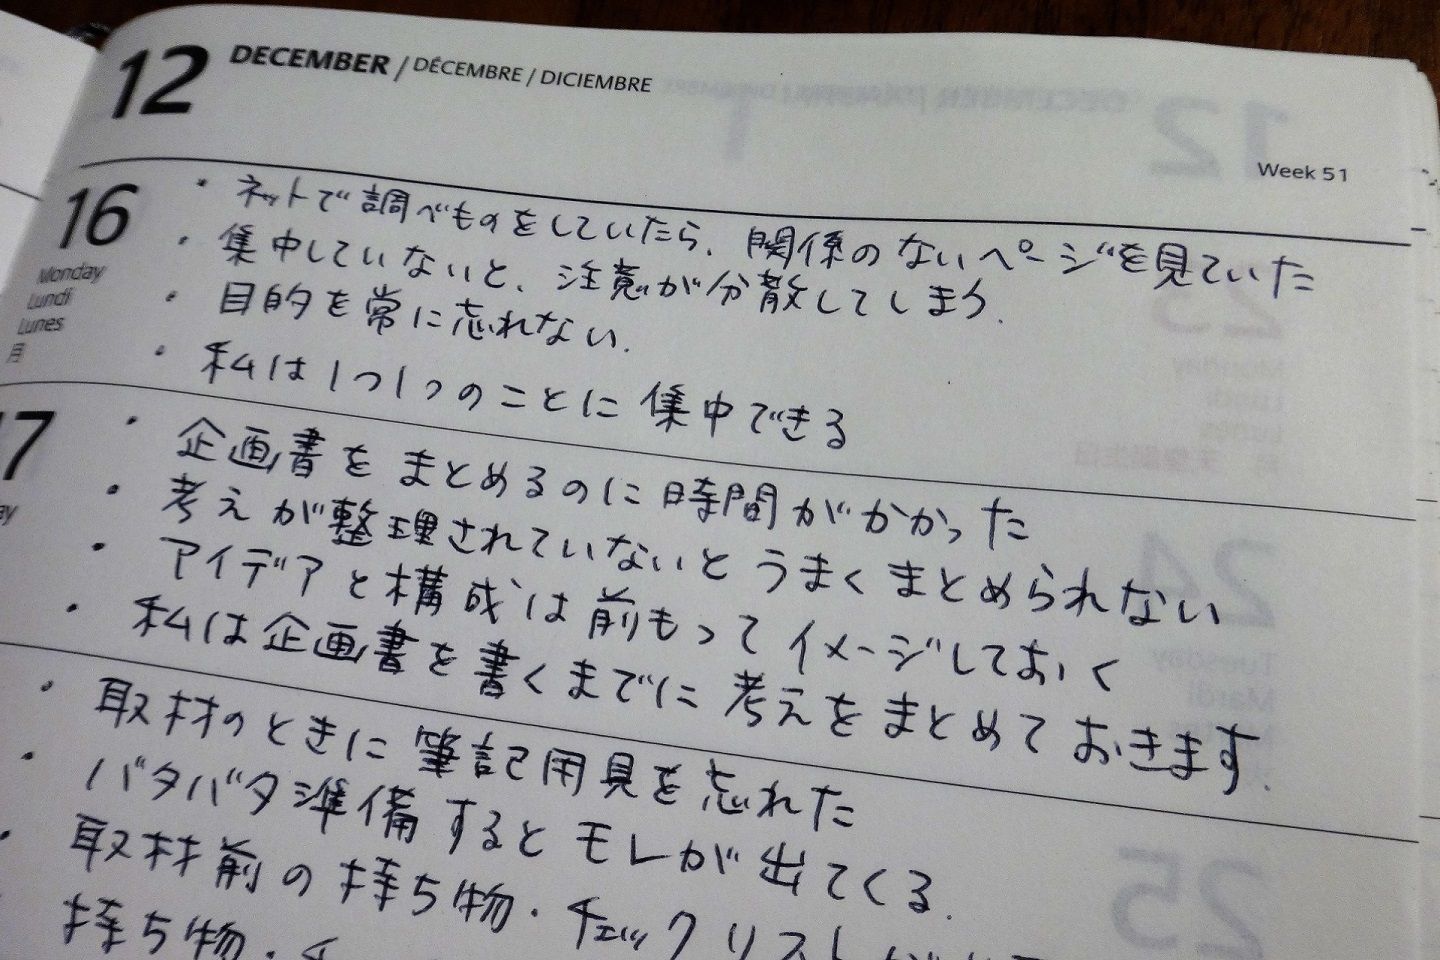 12 DECEMBER / DÉCEMBRE / DICIEMBRE
Week 51
16
Monday
Lundi
Lunes
月
・ネットで調べものをしていたら、関係のないページを見ていた
・集中していないと、注意が分散してしまう.
・目的を常に忘れない.
・私は1つ1つのことに集中できる
17
・企画書をまとめるのに時間がかかった
・考えが整理されていないとうまくまとめられない
・アイデアと構成は前もってイメージしておく
・私は企画書を書くまでに考えをまとめておきます.
・取材のときに筆記用具を忘れた
・バタバタ準備するとモレが出てくる.
・取材前の持ち物・チェックリストが
持ち物・チ